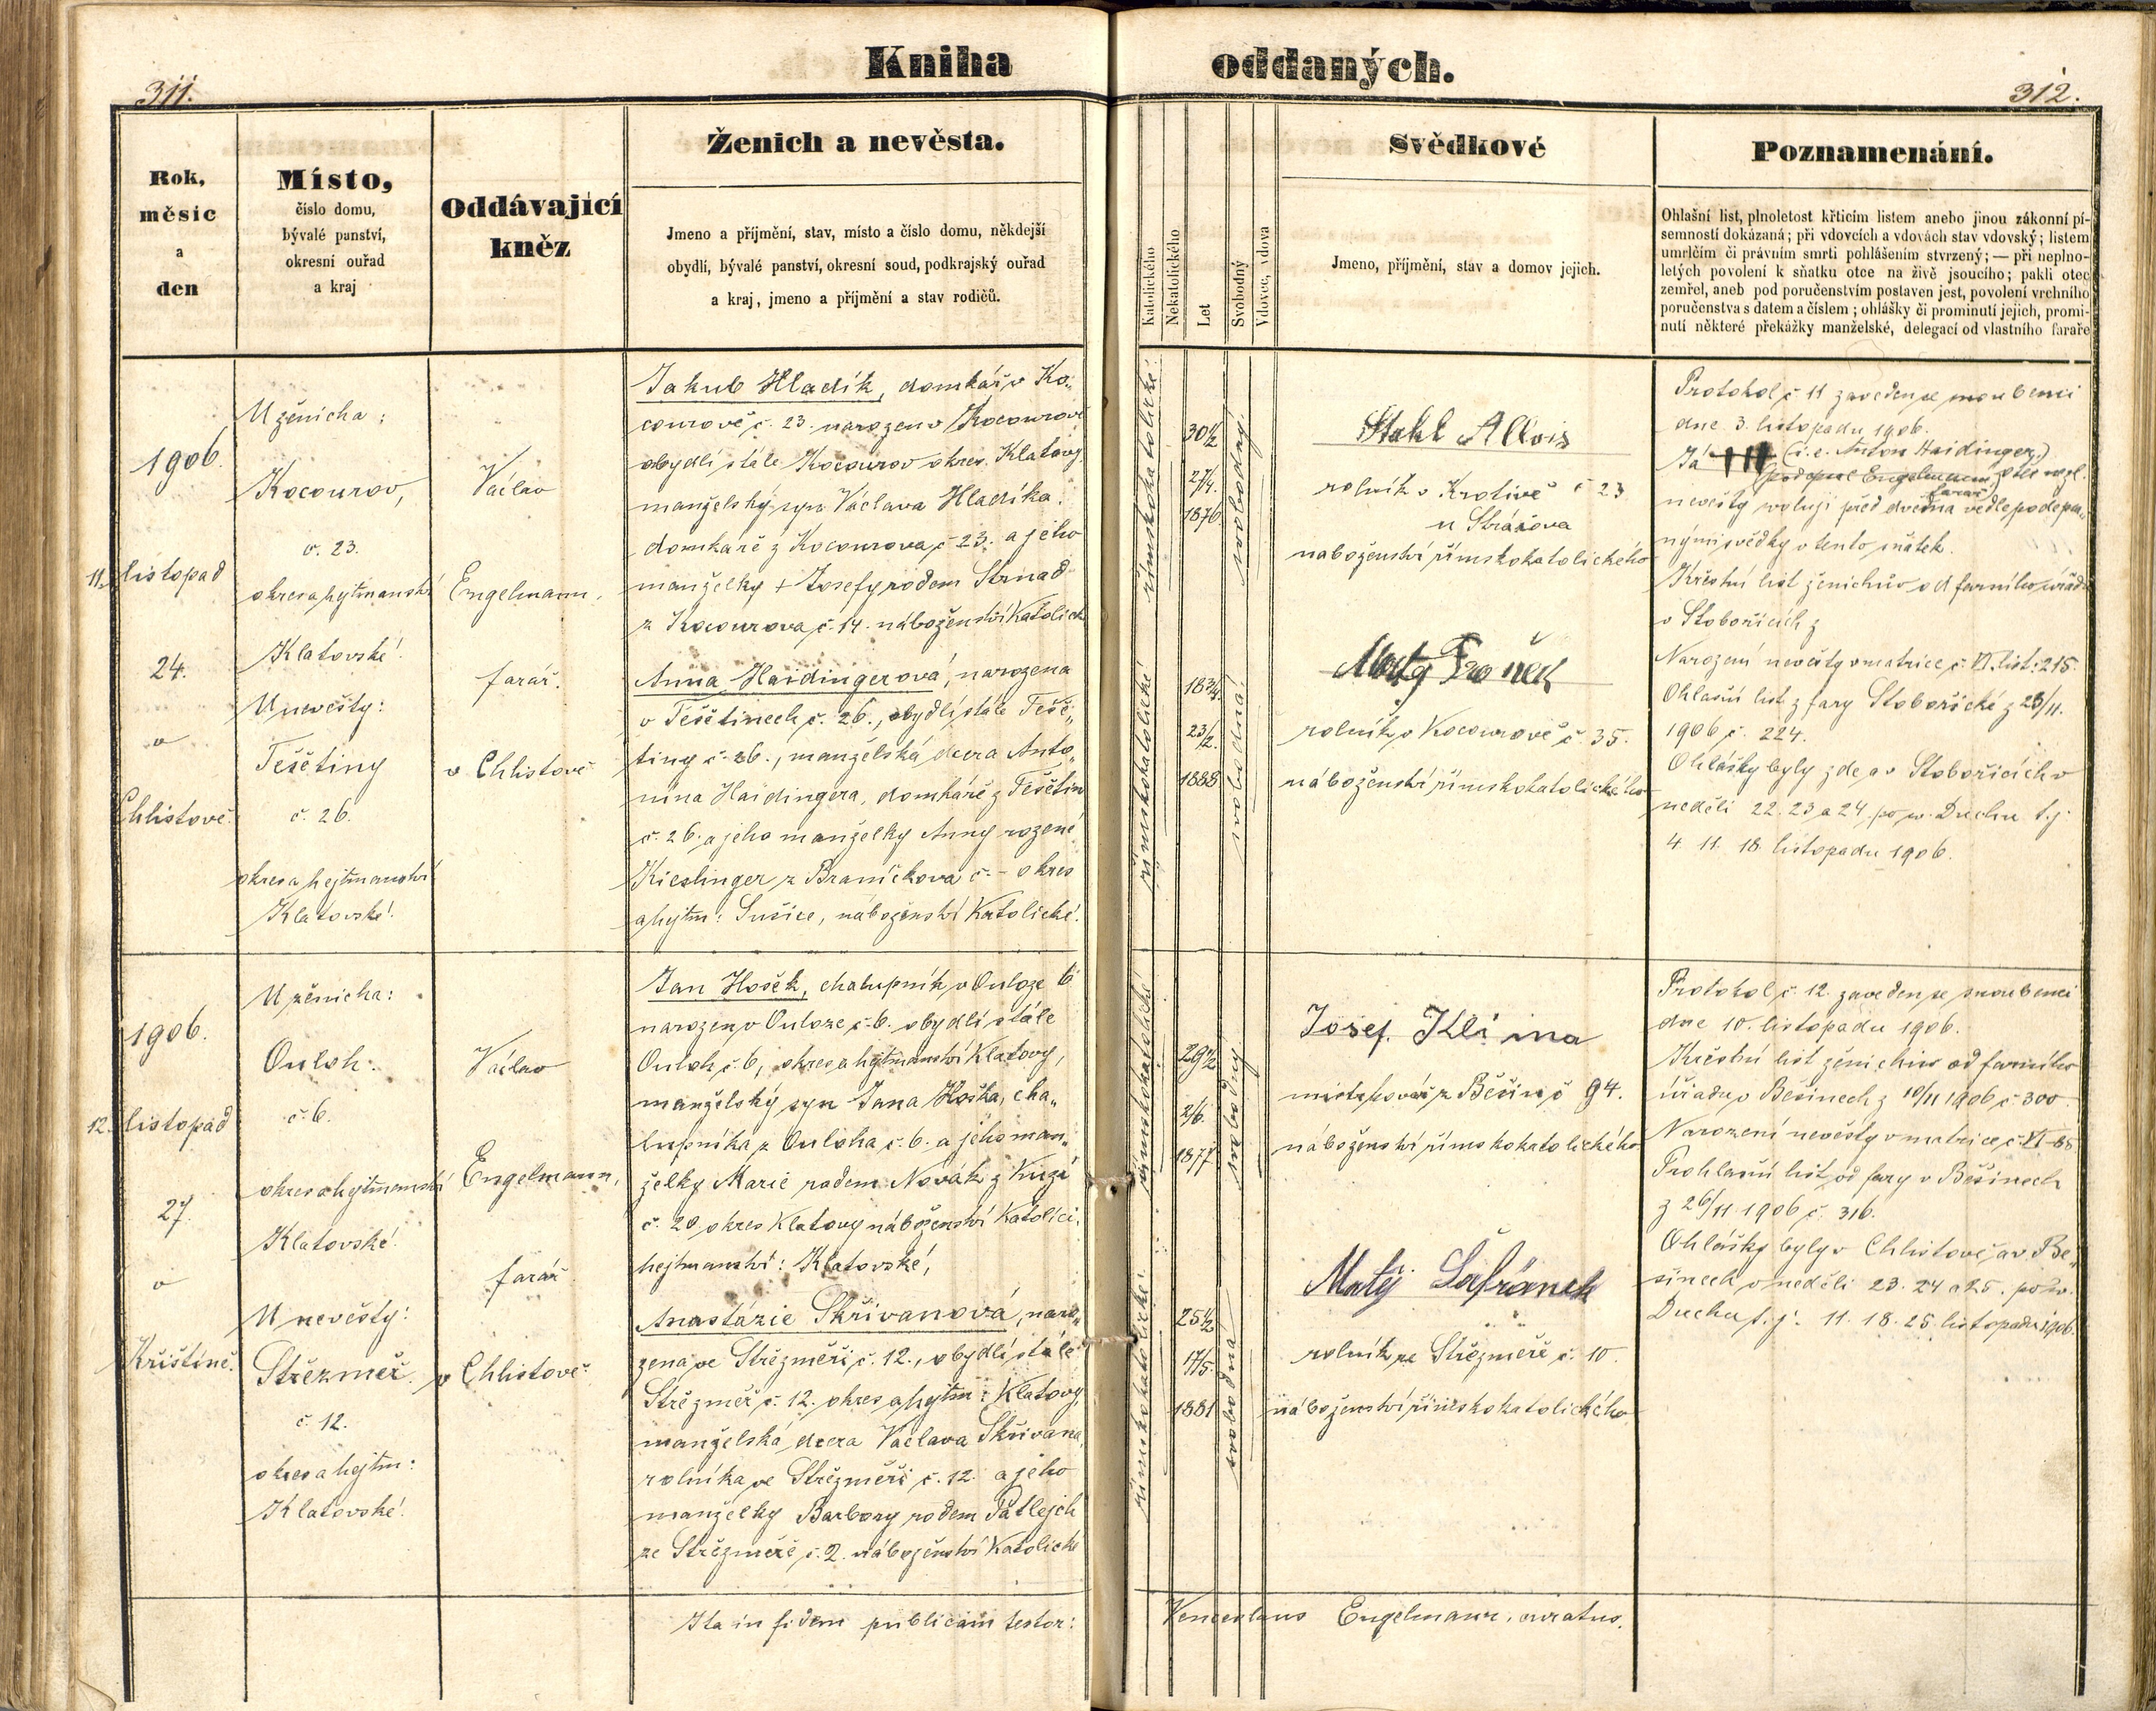 Kniha oddaných.
311.
312.
Rok,
měsíc
a
den
Místo,
číslo domu,
bývalé panství,
okresní ouřad
a kraj
Oddávající
kněz
Ženich a nevěsta.
Jmeno a příjmění, stav, místo a číslo domu, někdejší
obydlí, bývalé panství, okresní soud, podkrajský ouřad
a kraj, jmeno a příjmění a stav rodičů.
Katolického
Nekatolického
Let
Svobodný
Vdovec, vdova
Svědkové
Jmeno, příjmění, stav a domov jejich.
Poznamenání.
Ohlašní list, plnoletost křticím listem anebo jinou zákonní pí-
semností dokázaná; při vdovcích a vdovách stav vdovský; listem
umrlčím či právním smrti pohlášením stvrzený; — při neplno-
letých povolení k sňatku otce na živě jsoucího; pakli otec
zemřel, aneb pod poručenstvím postaven jest, povolení vrchního
poručenstva s datem a číslem; ohlášky či prominutí jejich, promi-
nutí některé překážky manželské, delegací od vlastního faráře
1906.
11. listopad
24.
v
Chlistově.
U ženicha:
Kocourov,
č. 23.
okres a hejtmanství
Klatovské.
U nevěsty:
Těšetiny
č. 26.
okres a hejtmanství
Klatovské.
Václav
Engelmann,
farář.
v Chlistově
Jakub Hladík, domkář v Ko„
courově č. 23. narozen v Kocourově
obydlí stále Kocourov okres. Klatovy,
manželský syn Václava Hladíka.
domkaře z Kocourova č. 23. a jeho
manželky + Josefy rodem Strnad
z Kocourova, č. 14. náboženství Katolick
Anna Haidingerová, narozena
v Těšetinech č. 26., obydlí stále Těše„
tiny č. 26., manželská dcera Anto„
nína Haidingera, domkáře z Těšetin
č. 26. a jeho manželky Anny rozené
Kieslinger z Braníčkova č. - okres
a hejtm: Sušice, náboženství Katolické.
římskokatolické
30½
27/4.
1876
svobodný.
římskokatolické
18¾.
23/2.
1888
svobodná.
Stahl Allois
rolník v Krotivě č 23
u Strážova
naboženství římskokatolického
rolník v Kocourově č. 35.
náboženství římskokatolického
Protokol č. 11 zaveden se snoubenci
dne 3. listopadu 1906.
Já (i.e. Anton Haidinger.)
Engelmann otec nezl.
farář
nevěsty svoluji před dvěma vedle podepsa„
nými svědky v tento sňatek.
Křestní list ženichův od farního úřadu
v Stobořicích z
Narození nevěsty v matrice č. VI. list: 215.
Ohlašní list z fary Stobořické z 23/11.
1906 č. 224.
Ohlášky byly zde a v Stobořicích v
neděli 22. 23 a 24. po sv. Duchu t.j.
4. 11. 18. listopadu 1906.
1906.
12. listopad
27.
v
Křištíně.
U ženicha:
Ouloh.
č. 6.
okres a hejtmanství
Klatovské.
U nevěsty:
Střezměř.
č. 12.
okres a hejtm:
Klatovské.
Václav
Engelmann,
farář
v Chlistově
Jan Hošek, chalupník v Ouloze 6
narozen v Ouloze č. 6. obydlí stále
Ouloh č. 6, okres a hejtmanství Klatovy,
manželský syn Jana Hoška, cha„
lupníka z Ouloha č. 6. a jeho man„
želky Marie rodem Novák z Kuzí
č. 20 okres Klatovy náboženství Katolíci.
hejtmanství: Klatovské,
Anastázie Skřivanová, naro„
zena ve Střezměři, č. 12., obydlí stále
Střezměř č. 12. okres a hejtm: Klatovy,
manželská dcera Václava Skřivana,
rolníka ve Střezměři č. 12. a jeho
manželky Barbory rodem Patlejch
ze Střezměře, č. 2. náboženství Katolické
římskokatolické
29½
2/6.
1877
svobodný
římskokatolické.
25½
17/5.
1881
svobodná
Josef Klíma
z Běšin č 94.
náboženství římskokatolického.
Matěj Šafránek
rolník ze Střezměře č. 10.
náboženství římskokatolického
Protokol č. 12. zaveden se snoubenci
dne 10. listopadu 1906.
Křestní list ženichův od farního
úřadu v Bešinech z 10/11 1906 č. 300.
Narození nevěsty v matrice č. VI-88.
Prohlašní list od fary v Bešinech
z 26/11 1906 č. 316.
Ohlášky byly v Chlistově a v Be„
šinech v neděli 23. 24 a 25. po sv.
Duchu t. j. 11. 18. 25. listopadu 1906.
Ita in fidem publicam testor: Venceslaus Engelmann, curatus.